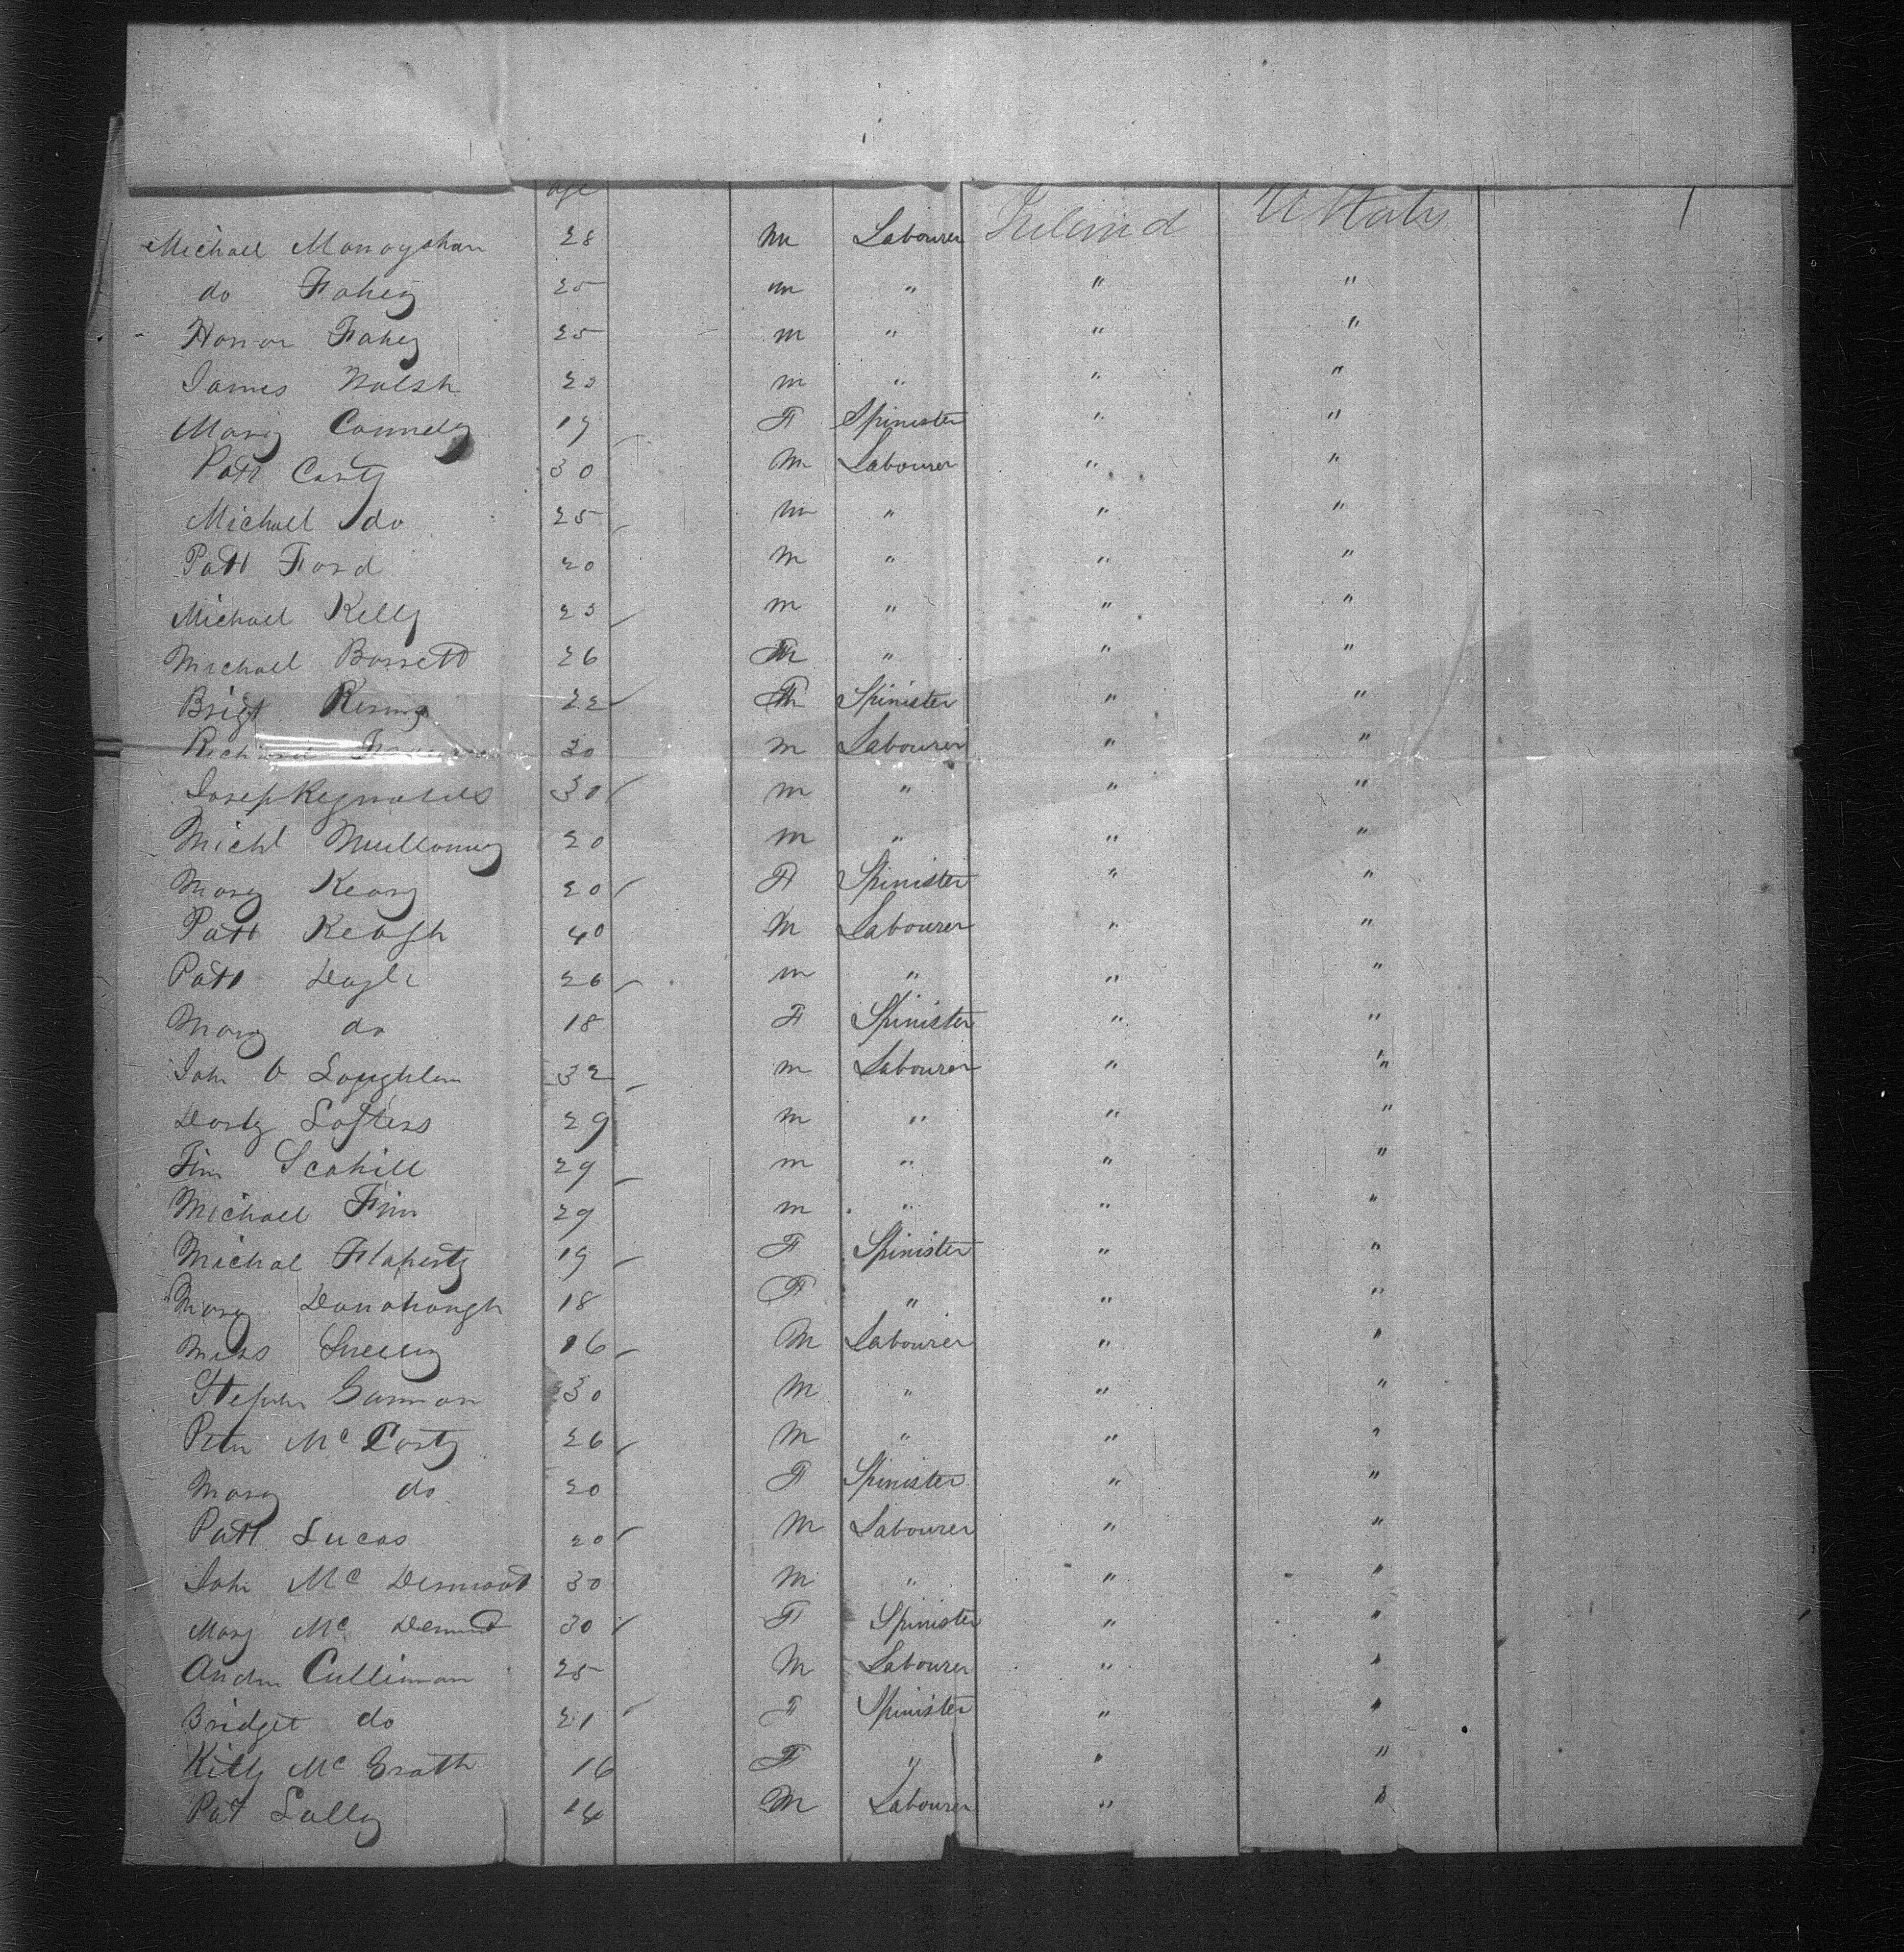 age
Michael Monoyshan 28 m Labourer Ireland U States
do Fahey 25 m " " "
Honor Fahey 25 m " " "
James Walsh 23 m " " "
Mary Connely 19 F Spinister " "
Patt Casty 30 M Labourer " "
Michael do 25 m " " "
Patt Ford 20 m " " "
Michael Kelly 23 m " " "
Michael Bassett 26 m " " "
Brigt 22 F Spinister " "
Richard 30 m Labourer " "
Joseph Reynolds 30 m " " "
Michl Mullowny 20 m " " "
Mary Keary 20 F Spinister " "
Patt Keogh 40 M Labourer " "
Patt 26 m " " "
Mary do 18 F Spinister " "
John O Loughlen 32 m Labourer " "
Loftess 29 m " " "
Tim Scahill 29 m " " "
Michael Finn 29 m " " "
Michal Flaherty 19 F Spinister " "
Mary Donohough 18 F " " "
16 M Labourer " "
Stephen Gannon 30 M " " "
Peter Mc Casty 26 M " " "
Mary do 20 F Spinister " "
Patt Lucas 20 M Labourer " "
John Mc Dermoot 30 M " " "
Mary Mc 30 F Spinister " "
Andrw Cullinnan 25 M Labourer " "
Bridget do 21 F Spinister " "
Kitty Mc Grath 16 F " " "
Pat Lally M Labourer " "